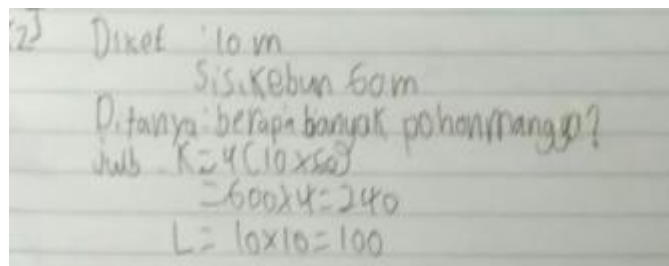 2] Diket : 10 m
Sisi kebun 60m
Ditanya : berapa banyak pohon mangga?
Jwb K = 4(10x60)
= 600x4 = 240
L = 10x10 = 100